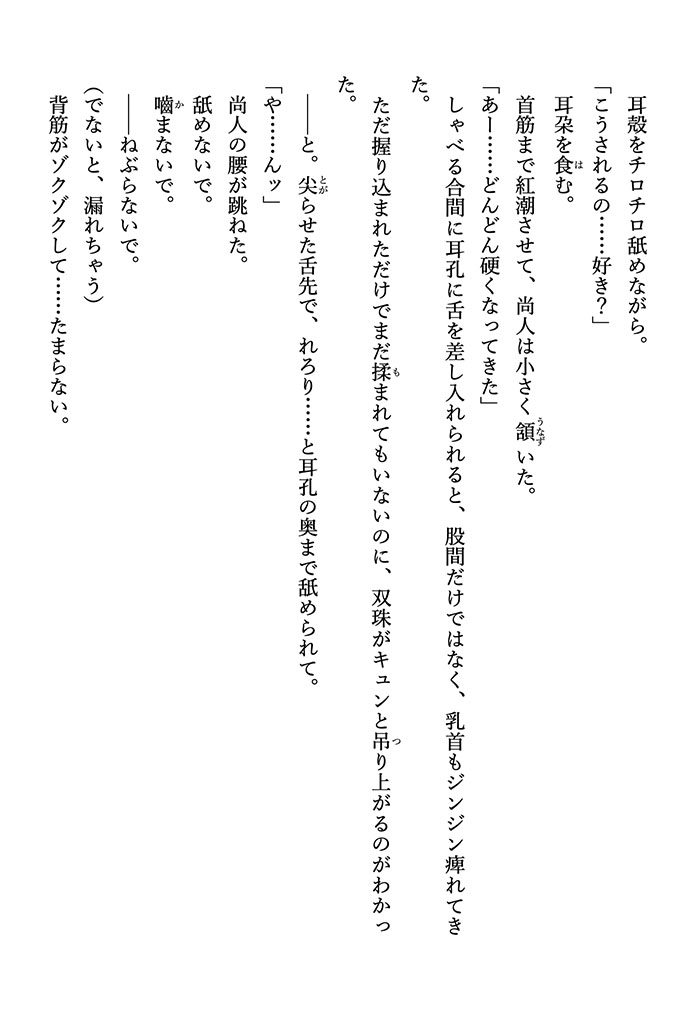 耳殻をチロチロ舐めながら。
「こうされるの……好き?」
耳朶を食む。
首筋まで紅潮させて、尚人は小さく頷いた。
「あー……どんどん硬くなってきた」
しゃべる合間に耳孔に舌を差し入れられると、股間だけではなく、乳首もジンジン痺れてき
た。
ただ握り込まれただけでまだ揉まれてもいないのに、双珠がキュンと吊り上がるのがわかっ
た。
――と。尖らせた舌先で、れろり……と耳孔の奥まで舐められて。
「や……んッ」
尚人の腰が跳ねた。
舐めないで。
嚙まないで。
――ねぶらないで。
(でないと、漏れちゃう)
背筋がゾクゾクして……たまらない。